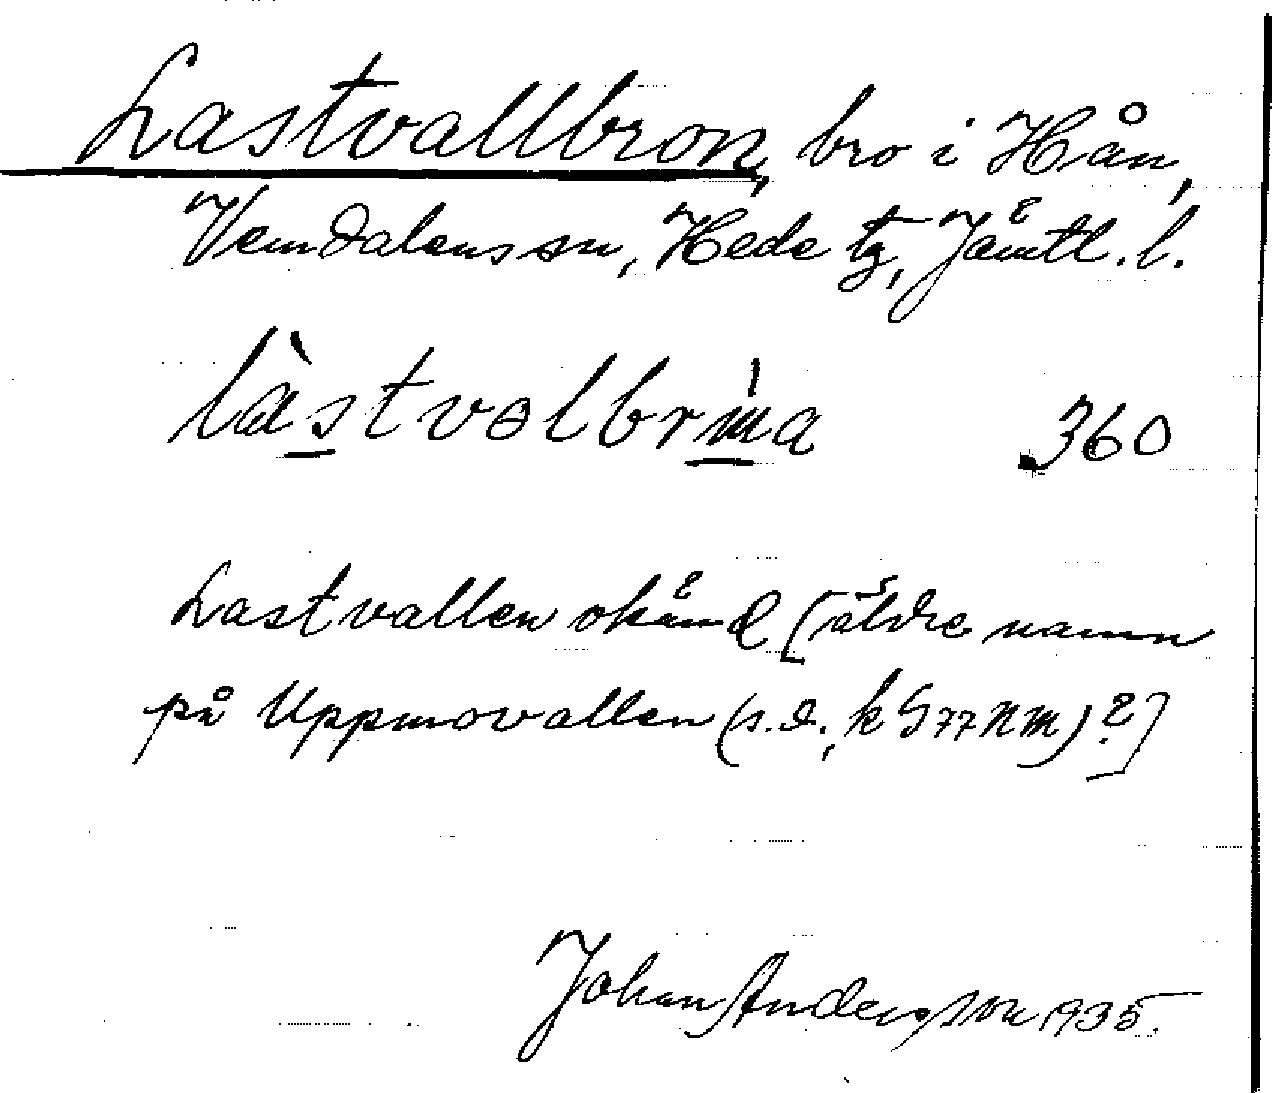 Lastvallbron, bro i Hån,
Vemdalens sn, Hede tg, Jämtl. l.
làstvəlbrɯ́a 360
Lastvallen okänd [äldre namn
på Uppmovallen (s.d., k S 77 Nm)?]
Johan Andersson 1935.